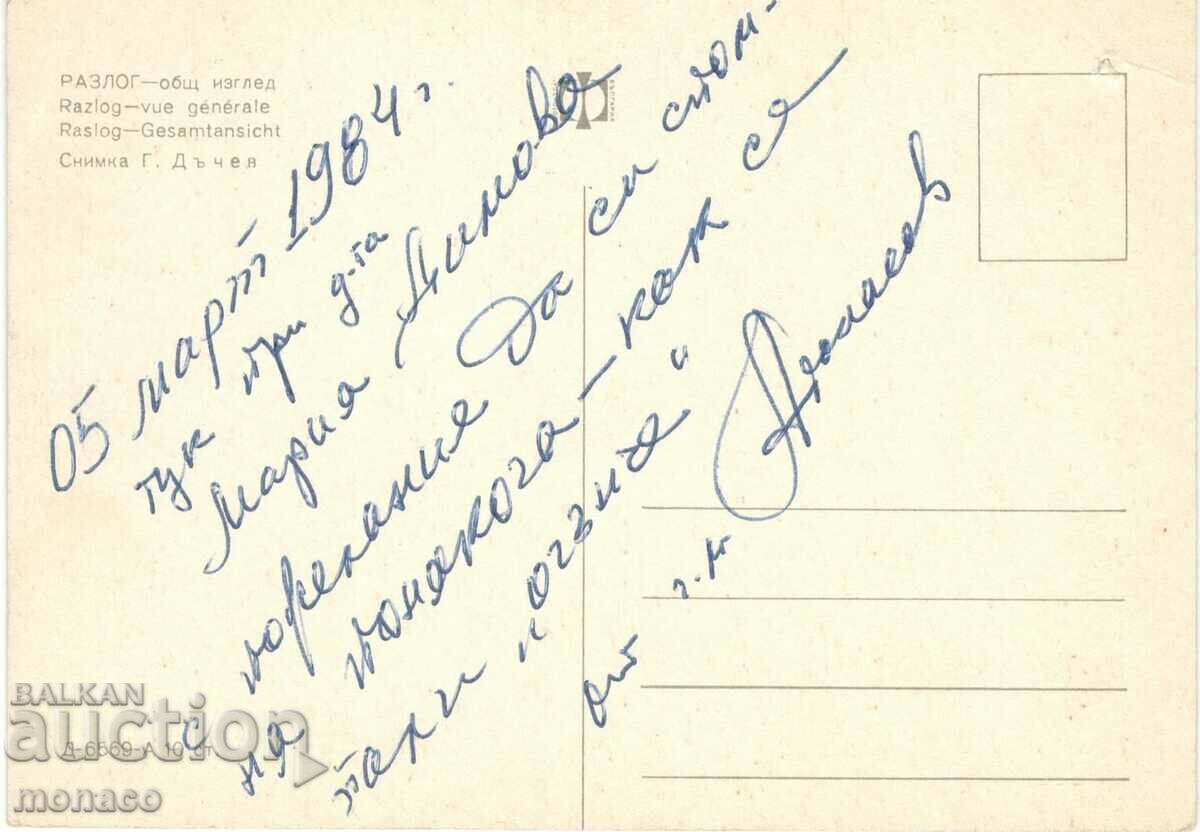 РАЗЛОГ—общ изглед
Razlog—vue générale
Raslog—Gesamtansicht
Снимка Г. Дъчев
БЪЛГАРИЯ
05 март 1984 г.
тук при д-та
Мария Димова
с пожелание да си спом-
ня понякога – как се
пали „огъня“
от г-н Атанасов
Д-6569-А 10 ст
BALKAN
auction
monaco